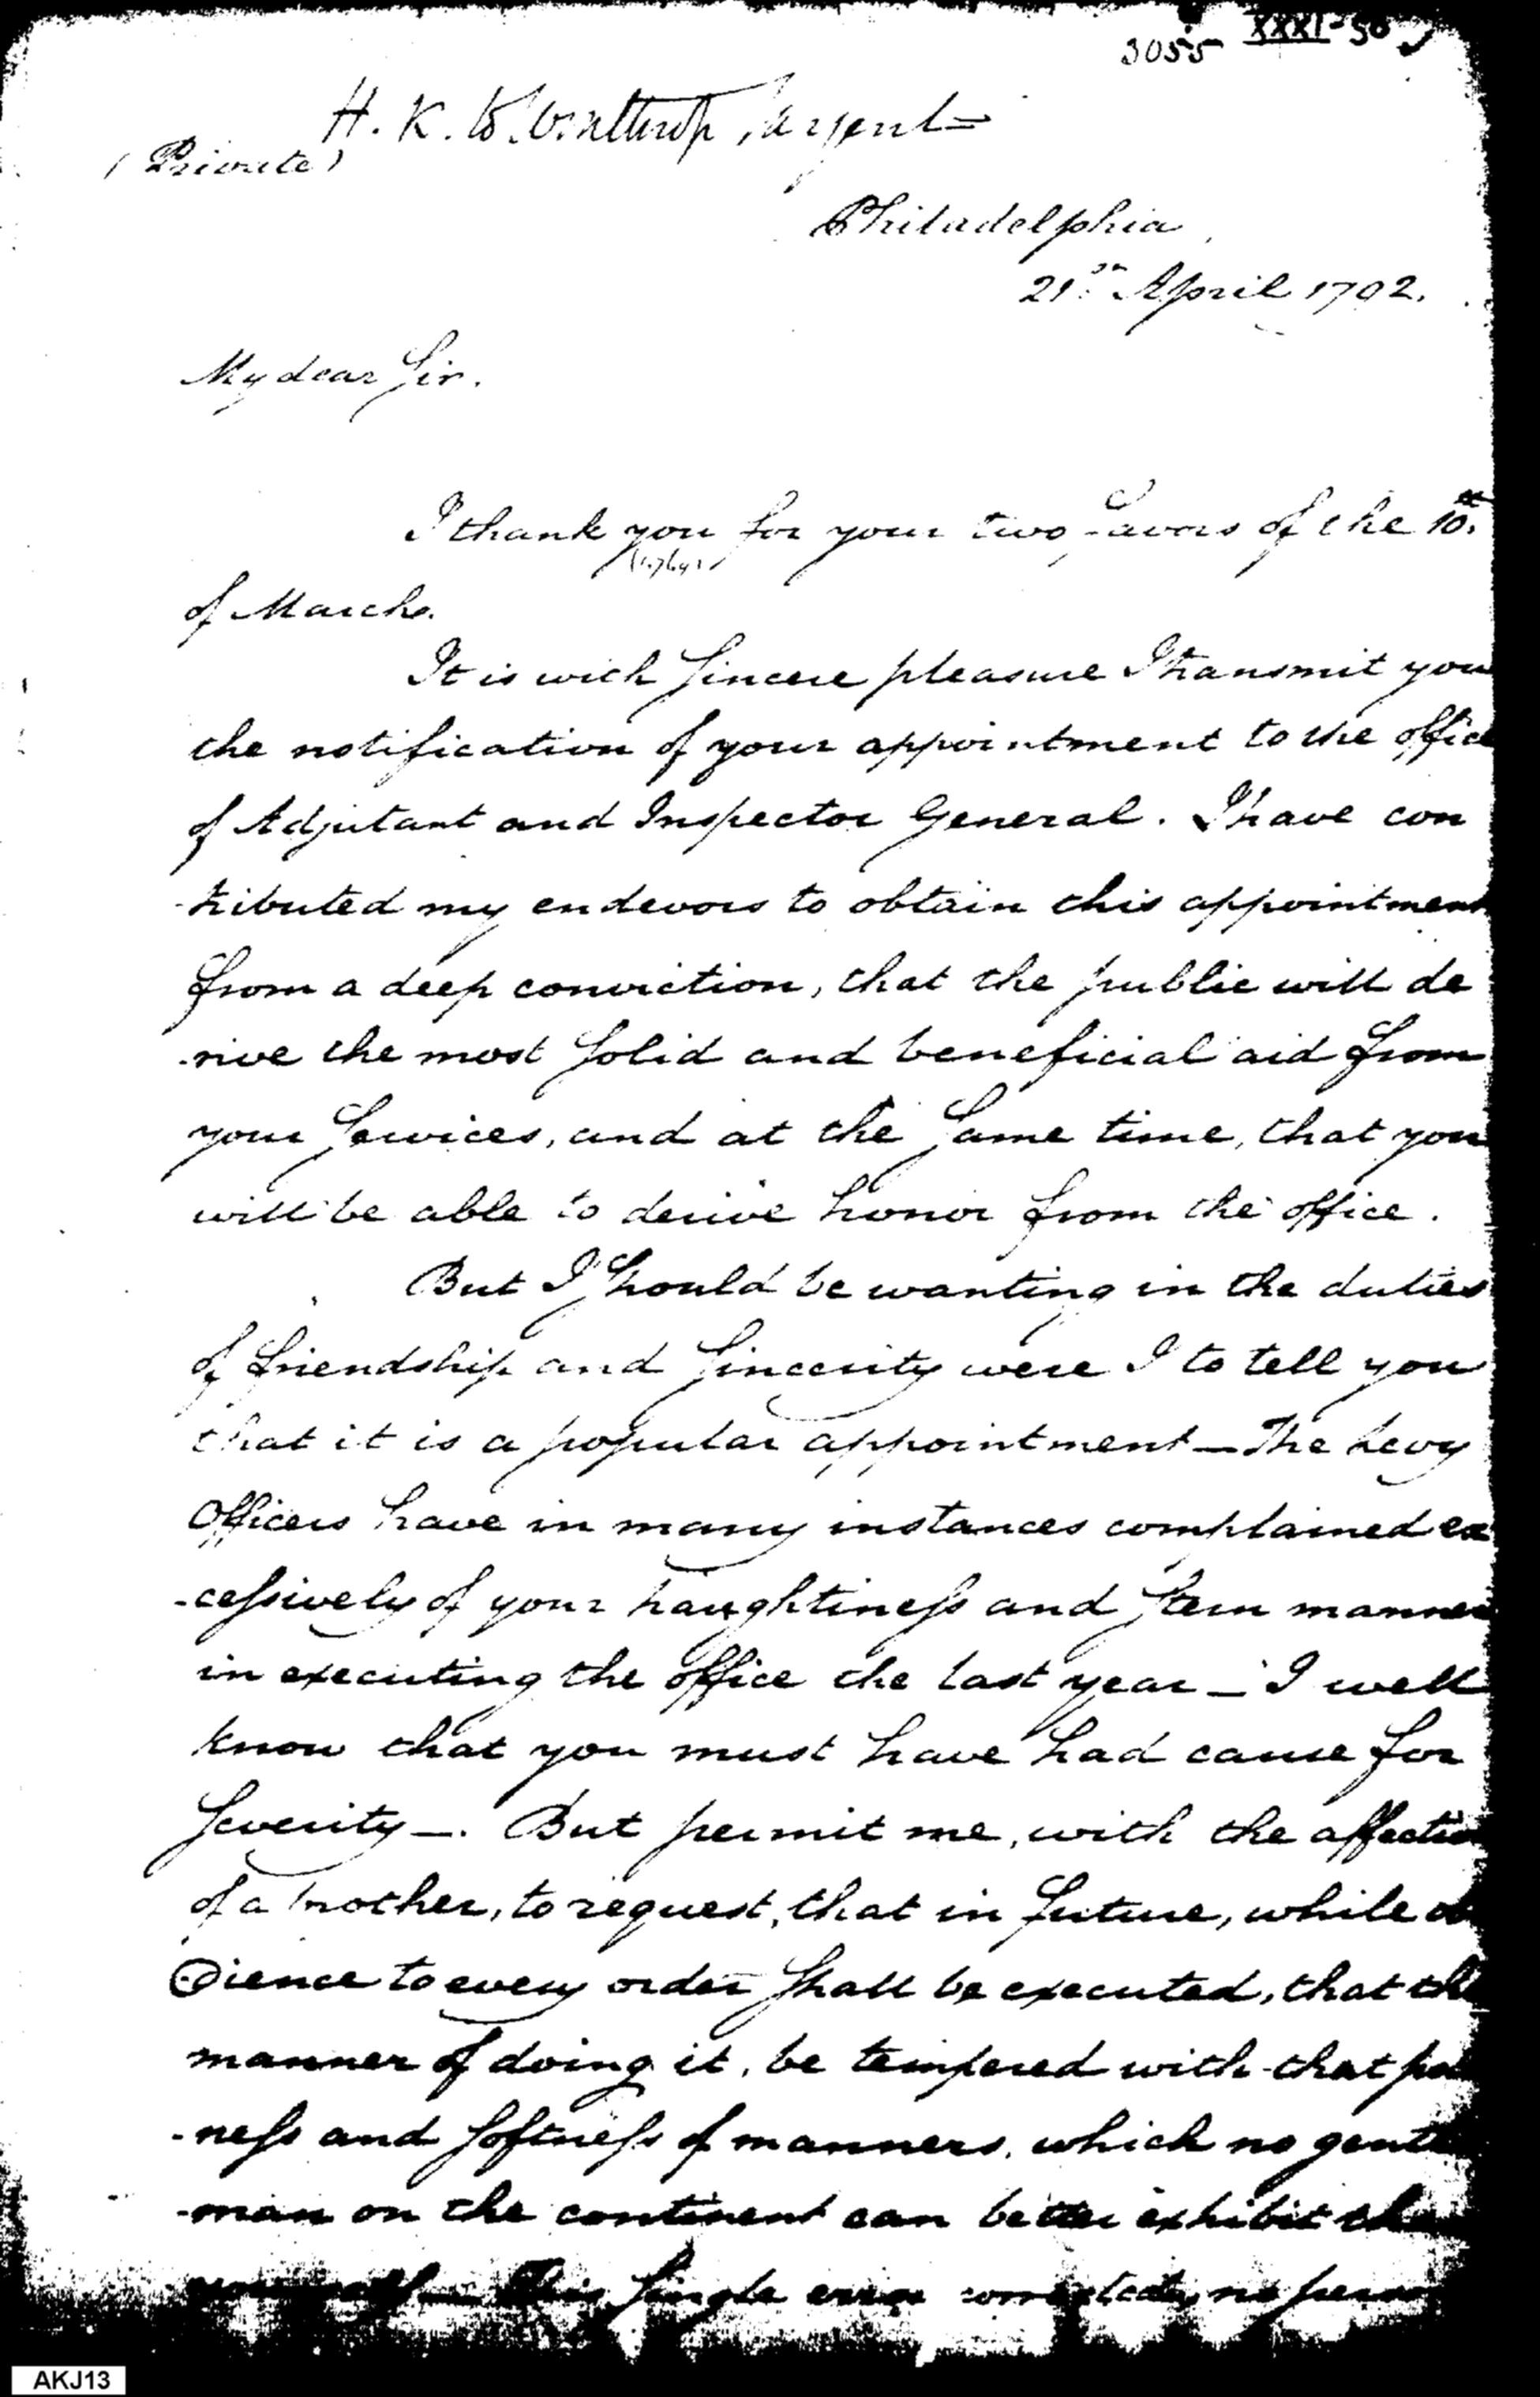 3055 XXXI-50
H. K. to Winthrop Sargent
(Private)
Philadelphia
21st April 1792.
My dear Sir.
I thank you for your two favors of the 10th.
of March.
It is with sincere pleasure I transmit you
the notification of your appointment to the office
of Adjutant and Inspector General. I have con
-tributed my endevors to obtain this appointment
from a deep conviction, that the public will de
-rive the most solid and beneficial aid from
your services, and at the same time, that you
will be able to derive honor from the office.
But I should be wanting in the duties
of friendship and sincerity were I to tell you
that it is a popular appointment — The Levy
Officers have in many instances complained ex
-cessively of your haughtiness and stern manner
in executing the office the last year — I well
know that you must have had cause for
severity —. But permit me, with the affection
of a brother, to request, that in future, while o
dience to every order shall be executed, that the
manner of doing it, be tempered with that pol
-ness and softness of manners, which no gentle
-man on the continent can better exhibit than
yourself — This single error corrected, no person
AKJ13